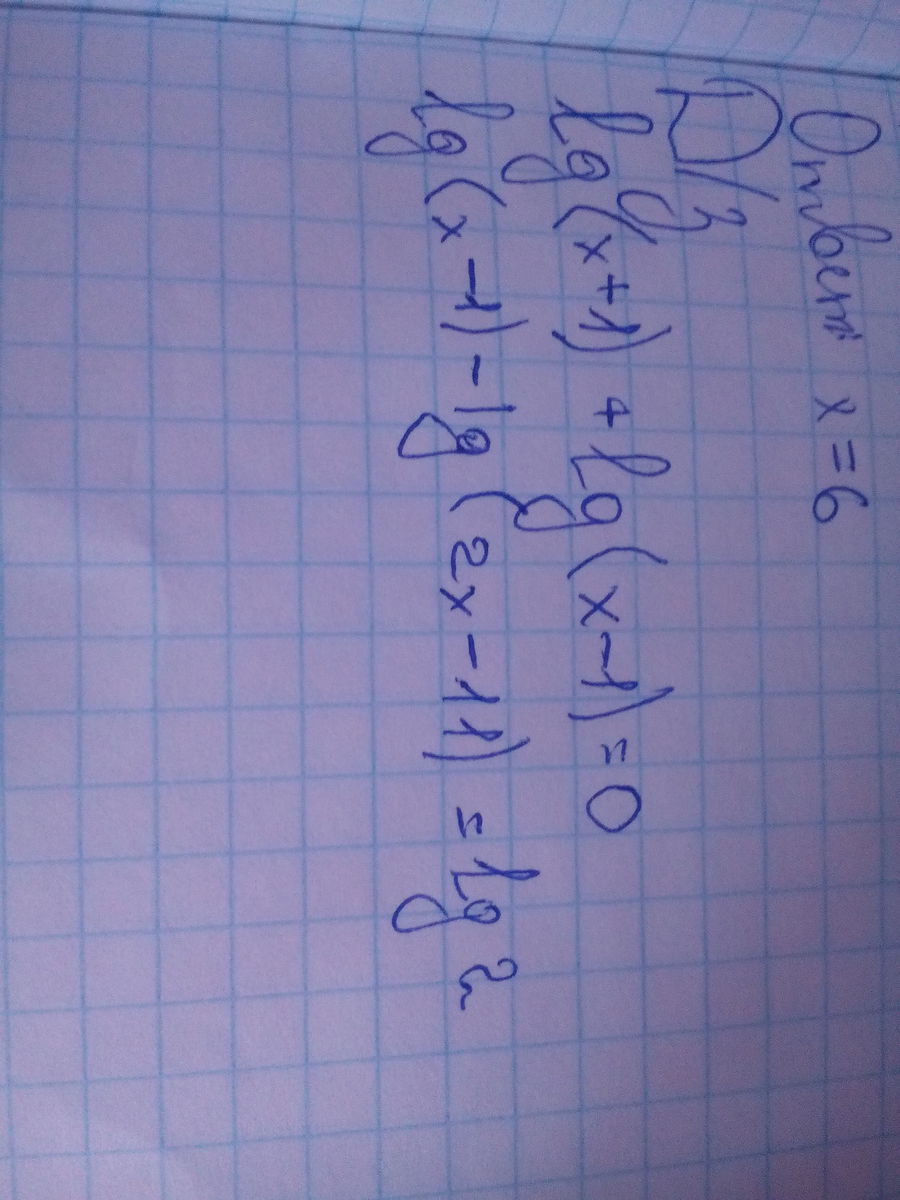 Ответ x = 6
Д/з
lg(x+1) + lg(x-1) = 0
lg(x-1) - lg(2x-11) = lg 2